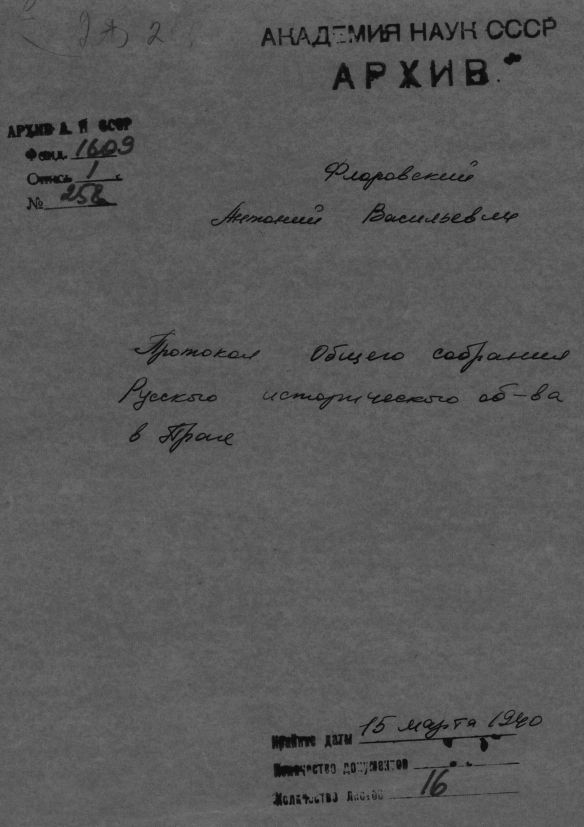 АКАДЕМИЯ НАУК СССР
АРХИВ
АРХИВ А. Н СССР
Фонд. 1609
Опись 1
№ 258
Флоровский
Антоний Васильевич
Протокол Общего собрания
Русского исторического об-ва
в Праге
Крайние даты 15 марта 1940
Количество документов
Количество листов 16